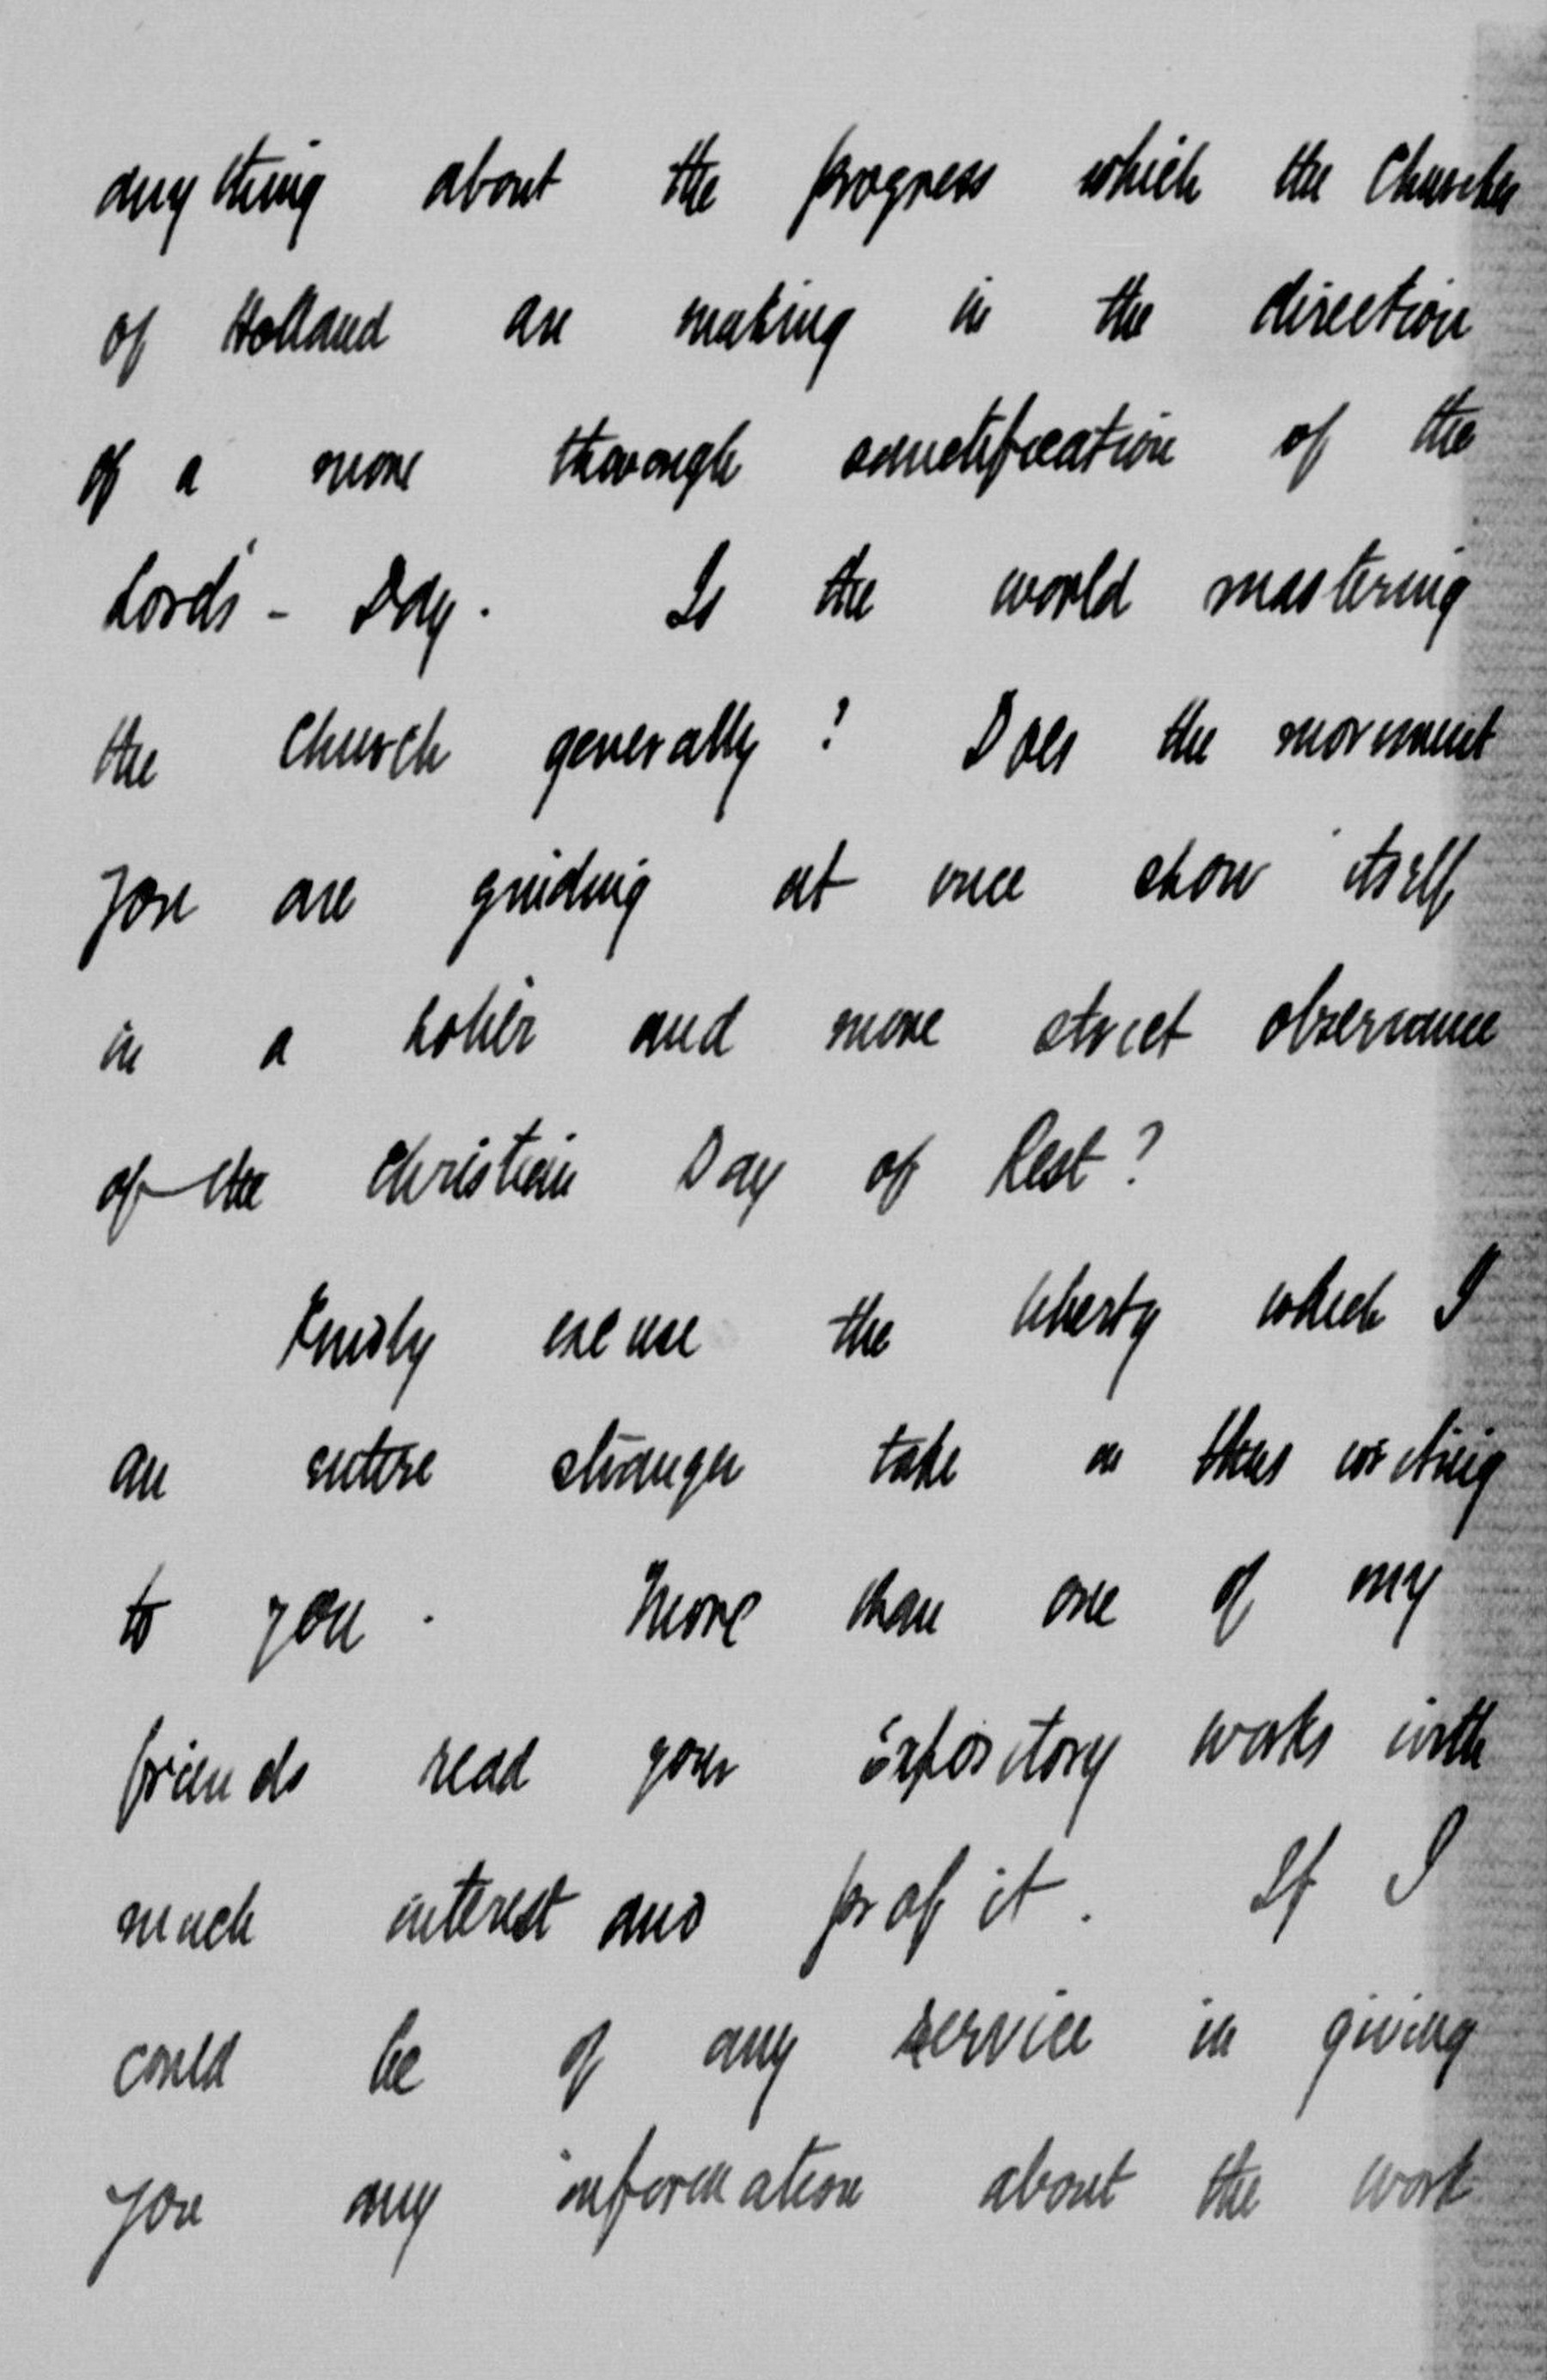 anything about the progress which the Churches
of Holland are making in the direction
of a more thorough sanctification of the
Lord's - Day. Is the world mastering
the Church generally? Does the movement
you are guiding at once show itself
in a holier and more strict observance
of the Christian Day of Rest?
Kindly excuse the liberty which I
an entire stranger take in thus writing
to you. More than one of my
friends read your Expository works with
much interest and profit. If I
could be of any service in giving
you any information about the work